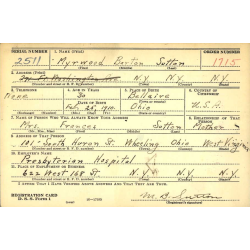 SERIAL NUMBER 1. NAME (Print) ORDER NUMBER
2511 Mynwood Burton Sutton 1715
2. ADDRESS (Print)
N.Y. N.Y. N.Y.
3. TELEPHONE 4. AGE IN YEARS 5. PLACE OF BIRTH 6. COUNTRY OF CITIZENSHIP
None 30 Bellaire
DATE OF BIRTH
Feb. 25, 1910 Ohio U.S.A.
7. NAME OF PERSON WHO WILL ALWAYS KNOW YOUR ADDRESS 8. RELATIONSHIP OF THAT PERSON
Mrs. Frances Sutton Mother
9. ADDRESS OF THAT PERSON
101 South Huron St Wheeling Ohio West Virginia
10. EMPLOYER'S NAME
Presbyterian Hospital
11. PLACE OF EMPLOYMENT OR BUSINESS
622 West 168 St. N.Y. N.Y. N.Y.
I AFFIRM THAT I HAVE VERIFIED ABOVE ANSWERS AND THAT THEY ARE TRUE.
REGISTRATION CARD
D. S. S. Form 1
M B Sutton